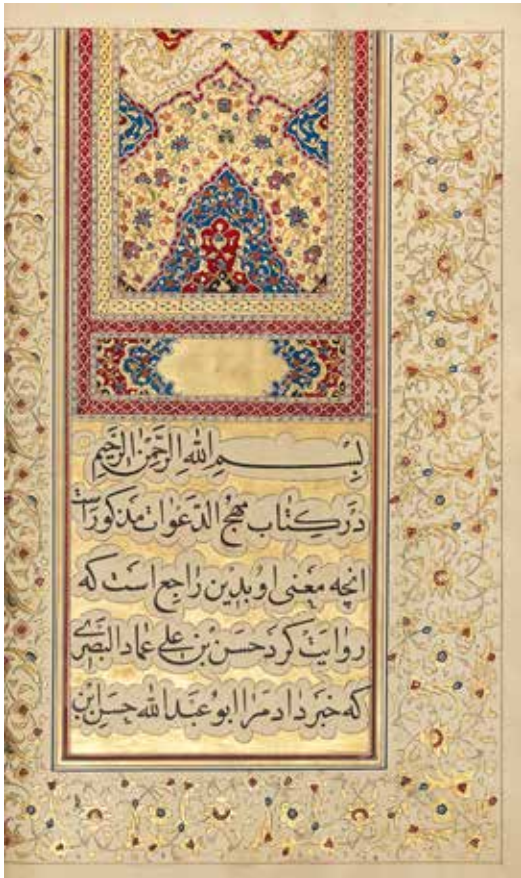 بِسْمِ اللهِ الرَّحْمٰنِ الرَّحِيْمِ
دَر كِتٰاب مهج الدّعَوٰات مَذكور است
انچه مَعنى او بدين رٰاجع است كه
روٰايت كرد حسَن بن على عماد البَصرى
كه خبَر دٰاد مَرٰا ابو عَبدالله حسَن بن